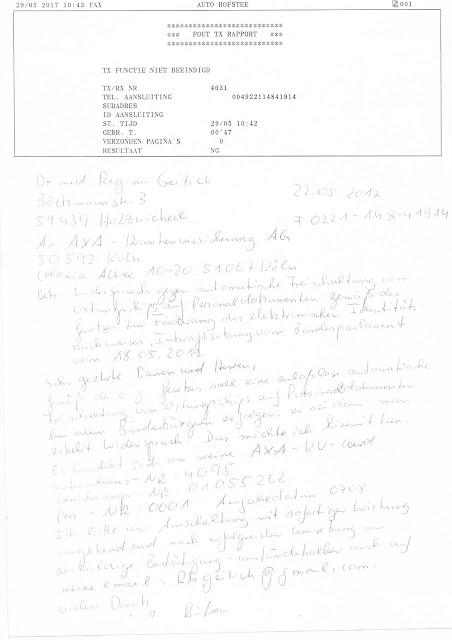 29/05 2017 10:43 FAX AUTO HOFSTEE 001
****************************
*** FOUT TX RAPPORT ***
****************************
TX FUNCTIE NIET BEEINDIGD
TX/RX NR 4631
TEL. AANSLUITING 004922114841914
SUBADRES
ID AANSLUITING
ST. TIJD 29/05 10:42
GEBR. T. 00'47
VERZONDEN PAGINA'S 0
RESULTAAT NG
Dr med Regina Geitlich
Böckmannstr. 3 22.05.2017
59439 Holzwickede 7 0221-148-41914
An AXA-Krankenversicherung AG
50592 Köln
Colonia Allee 10-20, 51067 Köln
Betr. Widerspruch gegen automatische Freischaltung von
Ortungschips auf Personaldokumenten, gemäß des
Gesetzes zur Förderung des elektronischen Identitäts-
nachweises, Inkraftsetzung vom Bundesparlament
vom 18.05.2017
Sehr geehrte Damen und Herren,
gemäß des o g Gesetzes soll eine anlaßlose automatische
Freischaltung von Ortungschips auf Personaldokumenten
bei allen Bundesbürgern erfolgen, es sei denn, man
erhebt Widerspruch. Das möchte ich hiermit tun.
Es handelt sich um meine AXA-KV-Card
NR: 4095
Versicherungs-NR: 01055262
Pers-NR: 0001 Ausgabedatum 0708
Ich bitte um Ausschaltung mit sofortiger Wirkung
umgehend und nach erfolgreicher Umsetzung um
Bestätigung umständehalber auch auf
meine email: @gmail.com.
Vielen Dank